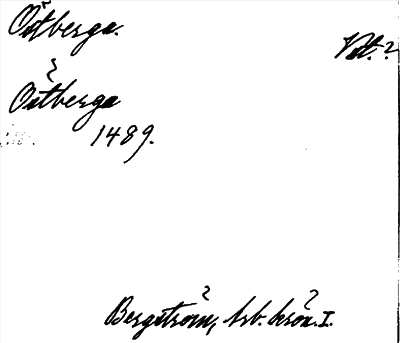 Östberga.
Vst.?
Östberga
1489.
Bergström, Arb. krön. I.